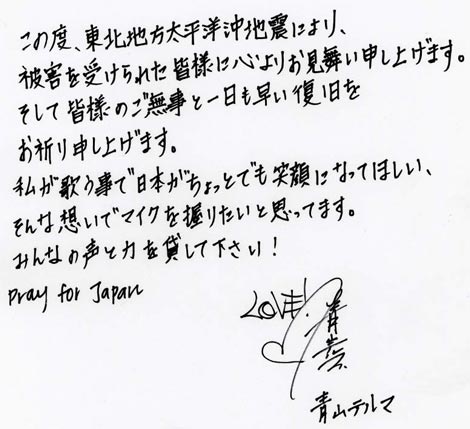 この度、東北地方太平洋沖地震により、
被害を受けられた皆様に心よりお見舞い申し上げます。
そして皆様のご無事と一日も早い復旧を
お祈り申し上げます。
私が歌う事で日本がちょっとでも笑顔になってほしい、
そんな想いでマイクを握りたいと思ってます。
みんなの声と力を貸して下さい！
pray for Japan
LOVE
青山テルマ